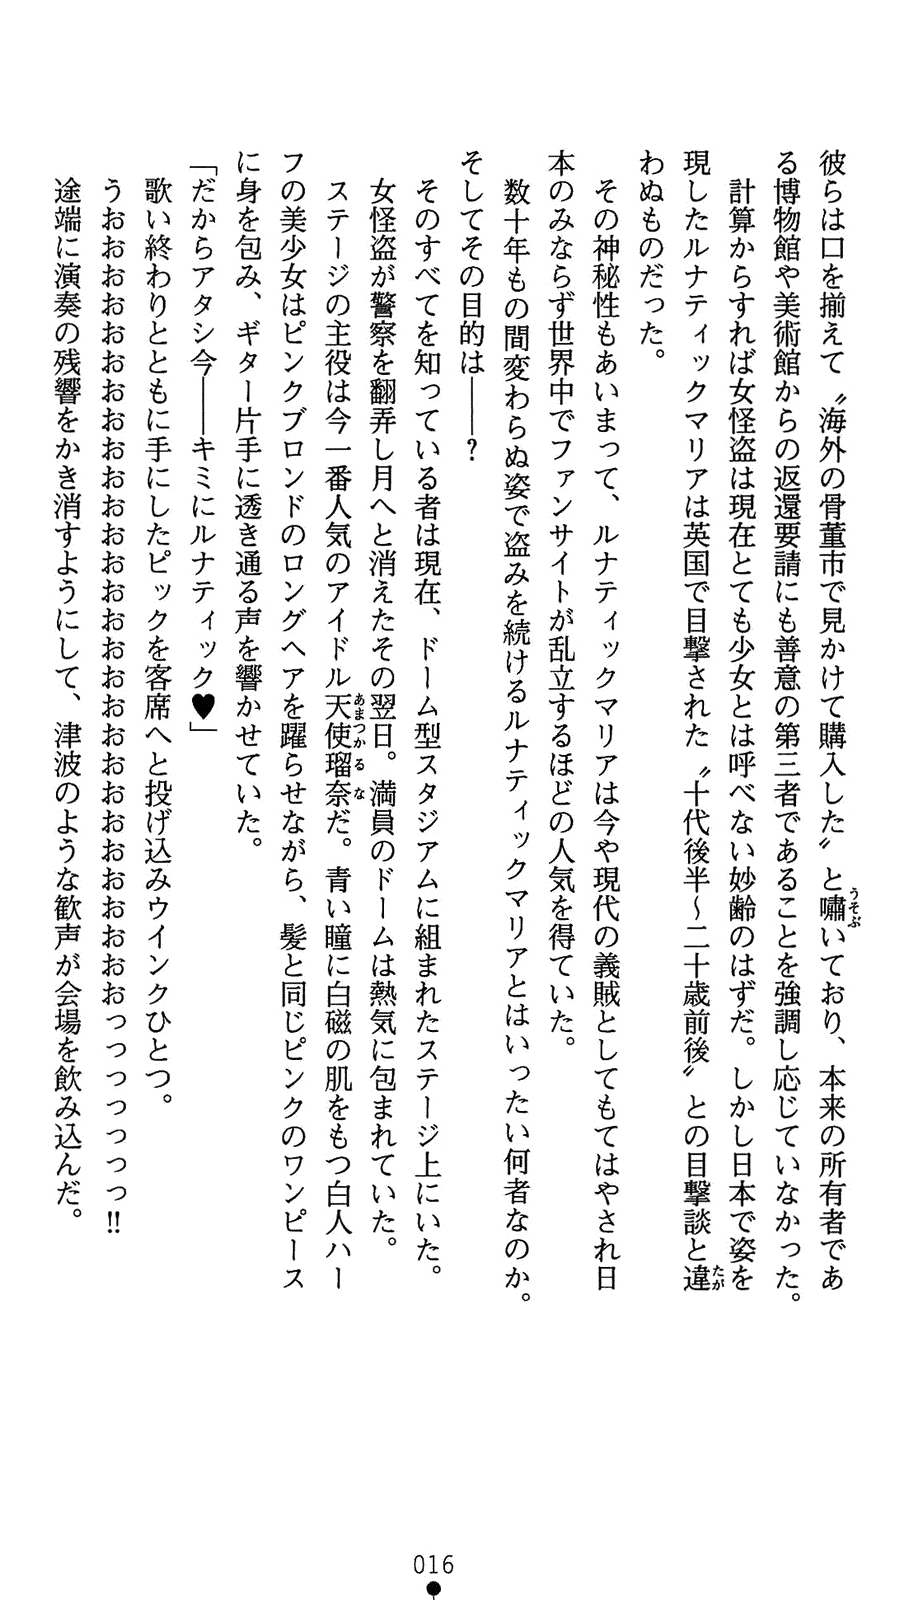 彼らは口を揃えて〝海外の骨董市で見かけて購入した〟と嘯いており、本来の所有者であ
る博物館や美術館からの返還要請にも善意の第三者であることを強調し応じていなかった。
計算からすれば女怪盗は現在とても少女とは呼べない妙齢のはずだ。しかし日本で姿を
現したルナティックマリアは英国で目撃された〝十代後半～二十歳前後〟との目撃談と違
わぬものだった。
その神秘性もあいまって、ルナティックマリアは今や現代の義賊としてもてはやされ日
本のみならず世界中でファンサイトが乱立するほどの人気を得ていた。
数十年もの間変わらぬ姿で盗みを続けるルナティックマリアとはいったい何者なのか。
そしてその目的は――？
そのすべてを知っている者は現在、ドーム型スタジアムに組まれたステージ上にいた。
女怪盗が警察を翻弄し月へと消えたその翌日。満員のドームは熱気に包まれていた。
ステージの主役は今一番人気のアイドル天使瑠奈だ。青い瞳に白磁の肌をもつ白人ハー
フの美少女はピンクブロンドのロングヘアを躍らせながら、髪と同じピンクのワンピース
に身を包み、ギター片手に透き通る声を響かせていた。
「だからアタシ今――キミにルナティック♥」
歌い終わりとともに手にしたピックを客席へと投げ込みウインクひとつ。
うおおおおおおおおおおおおおおおおおおおおおおおおおおおおっっっっっっっ!!
途端に演奏の残響をかき消すようにして、津波のような歓声が会場を飲み込んだ。
016